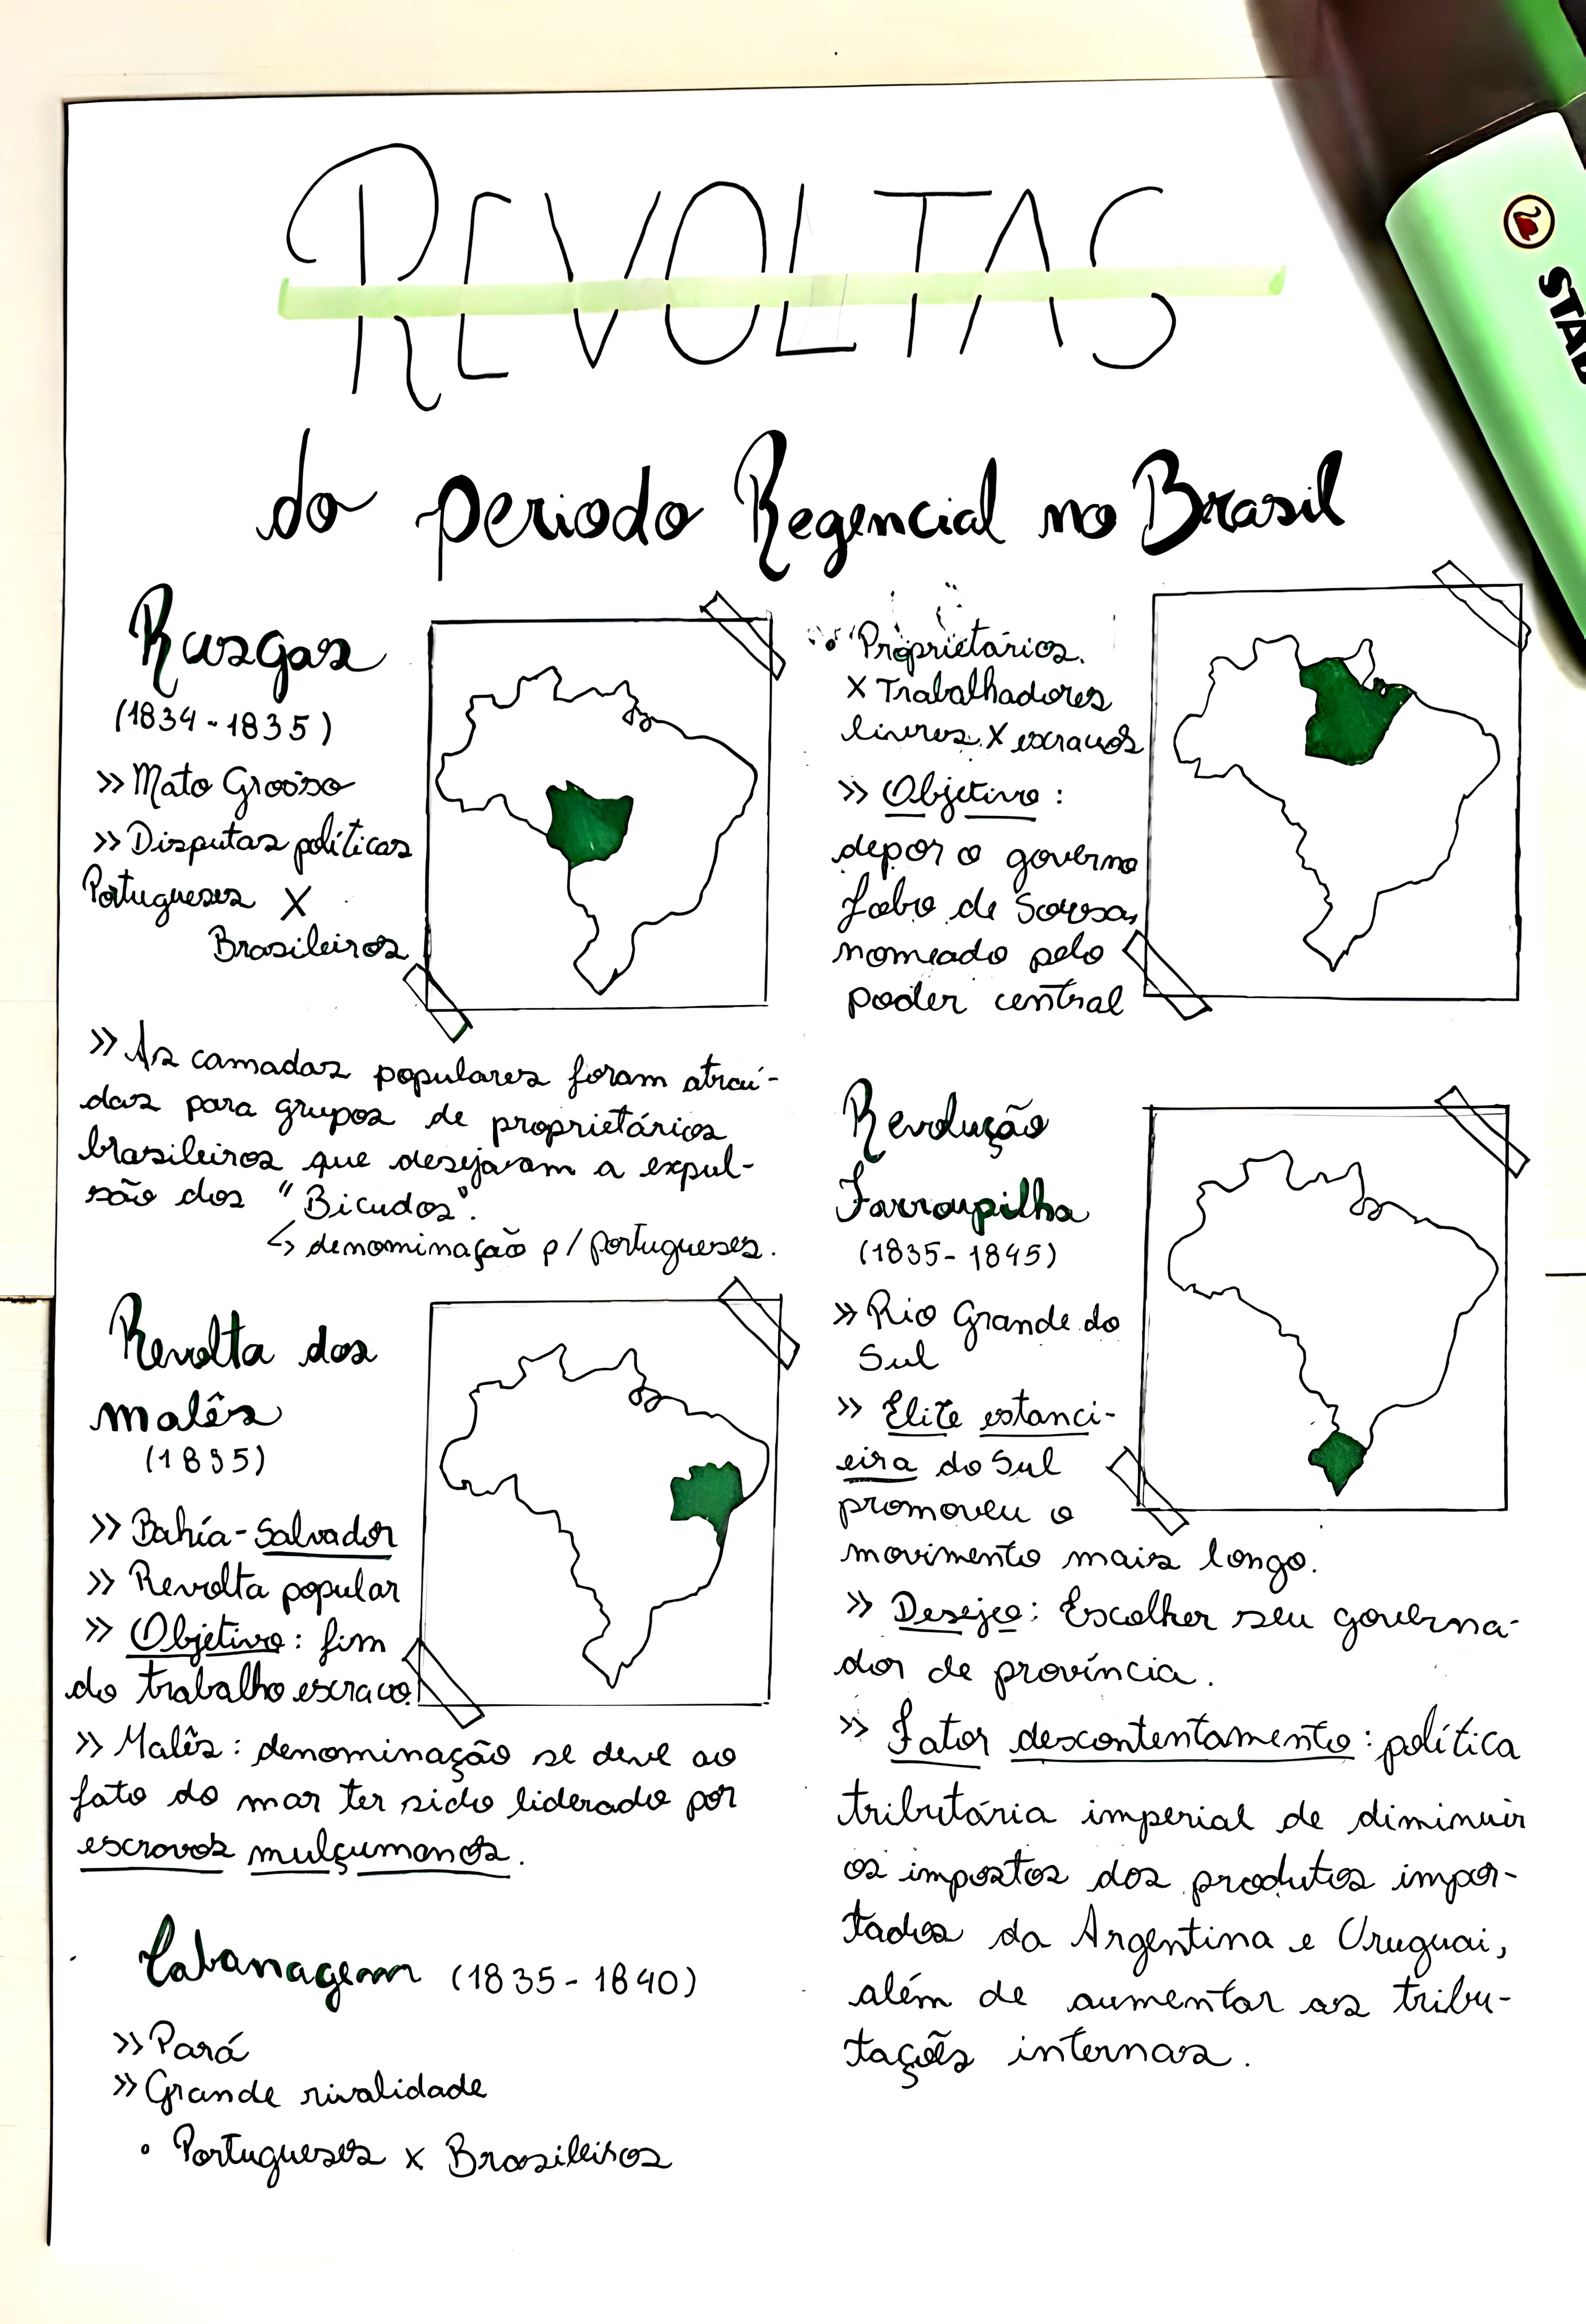 REVOLTAS
do periodo Regencial no Brasil
Rusgas
(1834-1835)
>> Mato Grosso
>> Disputas políticas
Portugueses X
Brasileiros
>> As camadas populares foram atraí-
das para grupos de proprietários
brasileiros que desejavam a expul-
são dos "Bicudos".
↳ denominação p/ portugueses.
Revolta dos
malês
(1835)
>> Bahía-Salvador
>> Revolta popular
>> Objetivo: fim
do trabalho escravo.
>> Malês: denominação se deve ao
fato do mar ter sido liderado por
escravos mulçumanos.
Cabanagem (1835-1840)
>> Pará
>> Grande rivalidade
• Portugueses x Brasileiros
• Proprietários
X Trabalhadores
livres X escravos
>> Objetivo:
depor o governo
Lobo de Sousa,
nomeado pelo
poder central
Revolução
Farroupilha
(1835-1845)
>> Rio Grande do
Sul
>> Elite estanci-
eira do Sul
promoveu o
movimento mais longo.
>> Desejo: Escolher seu governa-
dor de província.
>> Fator descontentamento: política
tributária imperial de diminuir
os impostos dos produtos impor-
tados da Argentina e Uruguai,
além de aumentar as tribu-
tações internas.